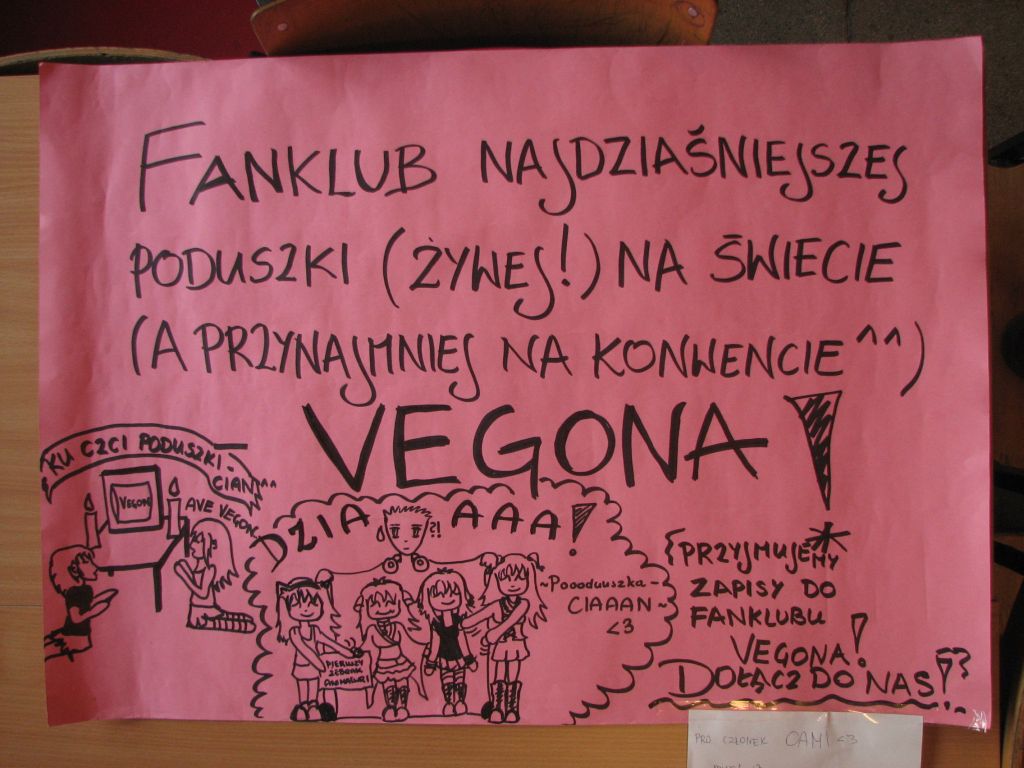 FANKLUB NAJDZIAŚNIEJSZEJ
PODUSZKI (ŻYWEJ!) NA ŚWIECIE
(A PRZYNAJMNIEJ NA KONWENCIE^^)
VEGONA!
KU CZCI PODUSZKI-
CIAN^^
VEGON
AVE VEGON
DZIA AAA!
?!
~Poooduuszka~
CIAAAN~
<3
PIERWSZY
ŻEBRAK
{PRZYJMUJEMY*
ZAPISY DO
FANKLUBU
VEGONA!
DOŁĄCZ DO NAS!?
PRO CZŁONEK OAMI <3